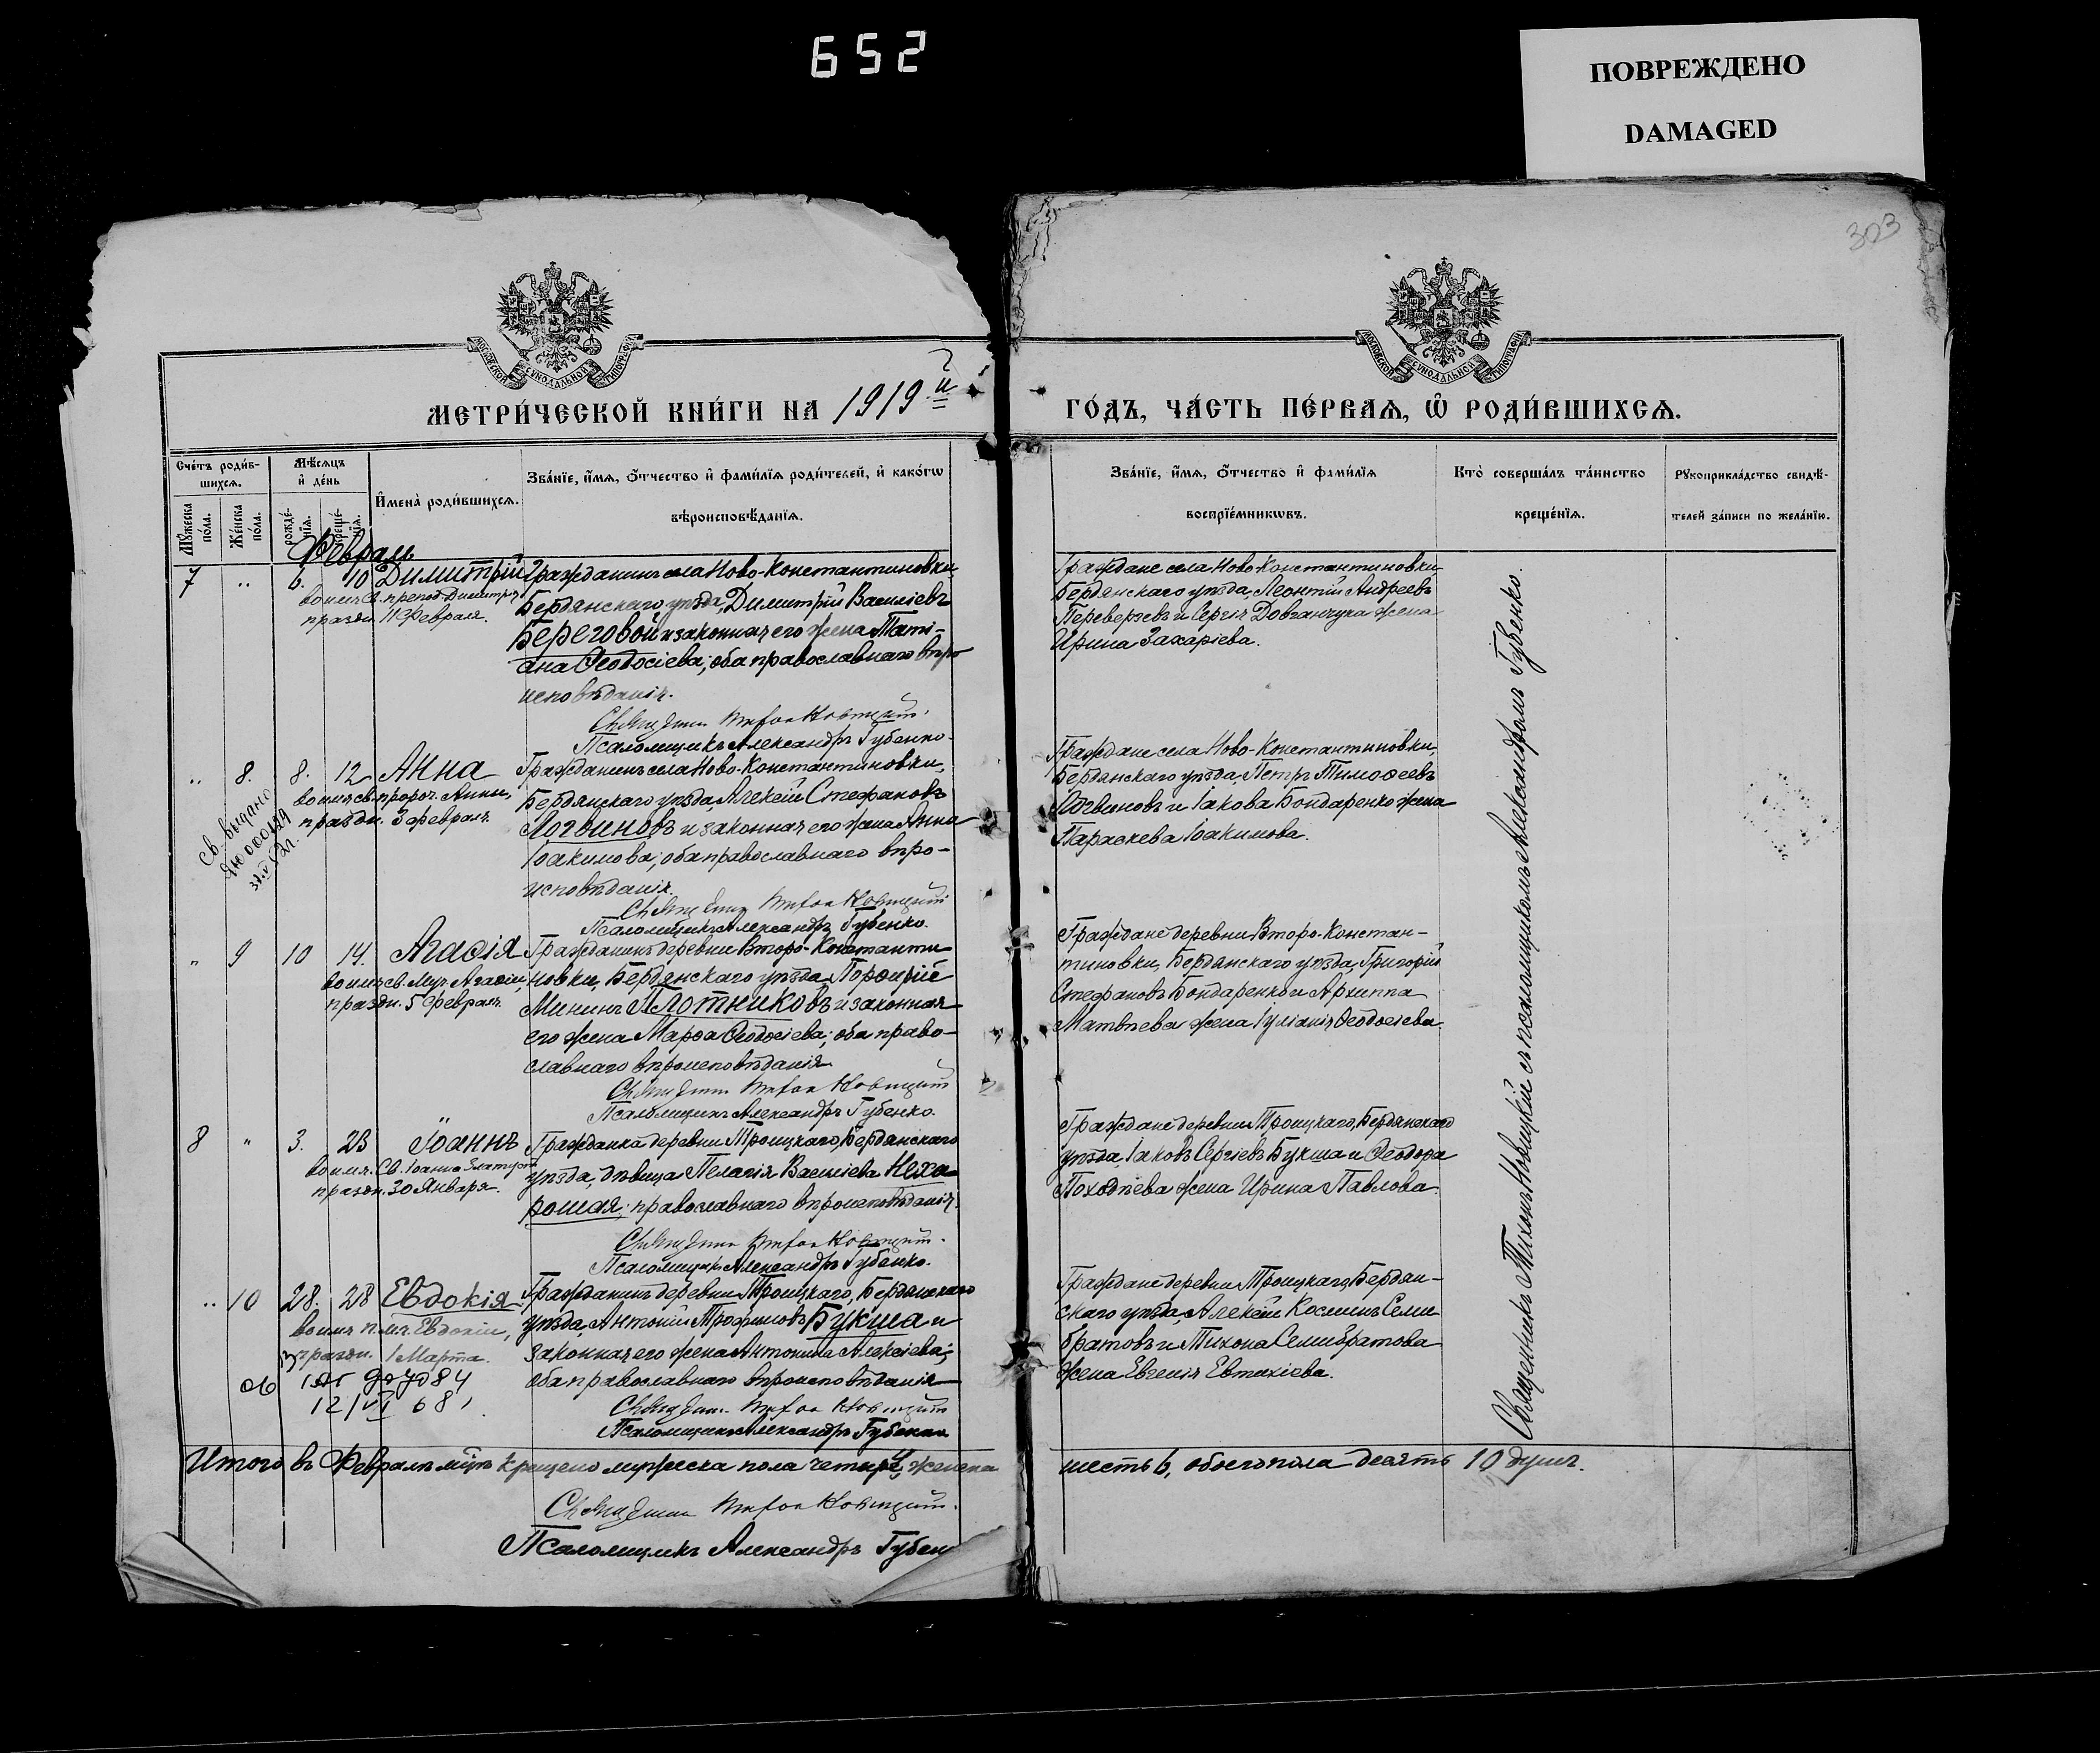 652
ПОВРЕЖДЕНО
DAMAGED
303
МОСКОВСКОЙ СѴНОДАЛЬНОЙ ТИПОГРАФІИ
МОСКОВСКОЙ СѴНОДАЛЬНОЙ ТИПОГРАФІИ
МЕТРИ́ЧЕСКОЙ КНИ́ГИ НА 1919 й
ГО́ДЪ, ЧА́СТЬ ПЕ́РВАѦ, Ѡ҆ РОДИ́ВШИХСѦ.
Сче́тъ роди́в-
шихсѧ.
Мꙋ́жеска по́ла.
Же́нска по́ла.
Мѣ́сѧцъ
и҆ де́нь
рожде́-
нїѧ.
креще́-
нїѧ.
И҆мена̀ роди́вшихсѧ.
Зва́нїе, и҆́мѧ, ѻ҆́тчество и҆ фами́лїѧ роди́телей, и҆ како́гѡ
вѣроисповѣ́данїѧ.
Зва́нїе, и҆́мѧ, ѻ҆́тчество и҆ фами́лїѧ
воспрїе́мникѡвъ.
Кто̀ соверша́лъ та́инство
креще́нїѧ.
Рꙋкоприкла́дство свидѣ́-
телей за́писи по жела́нїю.
Февраль
7 " 6. 10 Димитрій
во имя св. препод. Димитрія
праздн. 11 Февраля.
Гражданинъ села Ново-Константиновки,
Бердянскаго уѣзда, Димитрій Василіевъ
Береговой и законная его жена Тати-
ана Ѳеодосіева; оба православнаго вѣро
исповѣданія.
Священникъ Тихонъ Новицкій.
Псаломщикъ Александръ Губенко.
Граждане села Ново-Константиновки
Бердянскаго уѣзда, Леонтій Андреевъ
Переверзевъ и Сергія Довганчука жена
Ирина Захаріева.
" 8. 8. 12 Анна
во имя св. пророч. Анны,
праздн. 3 февраля.
св. выдано
31.V 52 г.
Гражданинъ села Ново-Константиновки,
Бердянскаго уѣзда, Алексій Стефановъ
Логвиновъ и законная его жена Анна
Іоакимова; оба православнаго вѣро-
исповѣданія.
Священникъ Тихонъ Новицкій
Псаломщикъ Александръ Губенко.
Граждане села Ново-Константиновки,
Бердянскаго уѣзда, Петръ Тимоѳеевъ
Логвиновъ и Іакова Бондаренко жена
Параскева Іоакимова.
" 9 10 14. Агаѳія
во имя св. Муч. Агаѳіи,
праздн. 5 Февраля.
Гражданинъ деревни Второ-Константи-
новки, Бердянскаго уѣзда, Порфирій
Мининъ Плотниковъ и законная
его жена Марѳа Ѳеодосіева; оба право-
славнаго вѣроисповѣданія
Священникъ Тихонъ Новицкій
Псаломщикъ Александръ Губенко.
Граждане деревни Второ-Констан-
тиновки, Бердянскаго уѣзда, Григорій
Стефановъ Бондаренко и Архиппа
Матвѣева жена Іуліанія Ѳеодосіева.
8 " 3. 23 Іоаннъ
во имя Св. Іоанна Златуст.
праздн. 30 Января.
Гражданка деревни Троицкаго, Бердянскаго
уѣзда, дѣвица Пелагія Василіева Неха-
рошая; православнаго вѣроисповѣданія.
Священникъ Тихонъ Новицкій.
Псаломщикъ Александръ Губенко.
Граждане деревни Троицкаго, Бердянскаго
уѣзда, Іаковъ Сергіевъ Букша и Ѳеодора
Походѣева жена Ирина Павлова.
" 10 28. 28 Евдокія
во имя п. мч. Евдокіи,
праздн. 1 Марта.
12/VI 68
Гражданинъ деревни Троицкаго, Бердянскаго
уѣзда, Антоній Трофимовъ Букша и
законная его жена Антонина Алексіева;
оба православнаго вѣроисповѣданія
Священникъ Тихонъ Новицкій
Псаломщикъ Александръ Губенко
Граждане деревни Троицкаго, Бердян-
скаго уѣзда, Алексій Косминъ Семи
братовъ и Тихона Семибратова
жена Евгенія Евтихіева.
Священникъ Тихонъ Новицкій съ псаломщикомъ Александромъ Губенко.
Итого въ Февралѣ м-цѣ крещено мужеска пола четыре 4, женска
шесть 6, обоего пола десять 10 душъ.
Священникъ Тихонъ Новицкій.
Псаломщикъ Александръ Губен